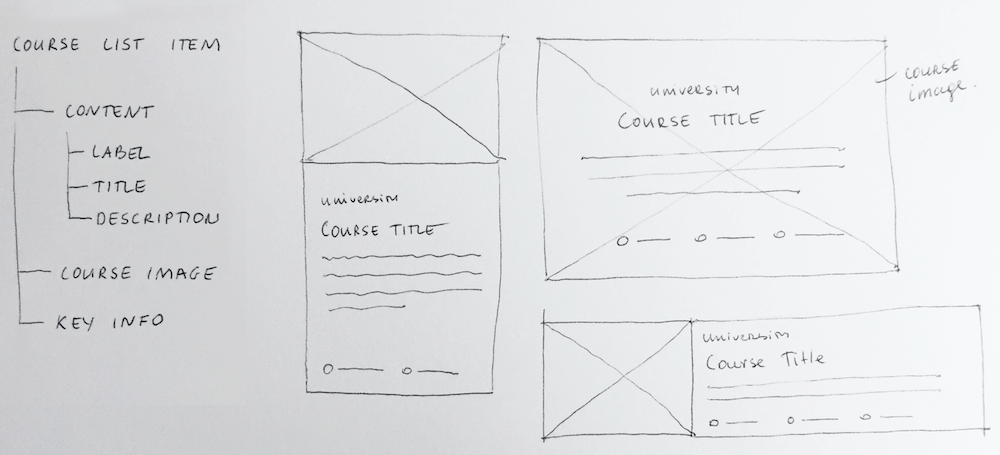 COURSE LIST ITEM
CONTENT
LABEL
TITLE
DESCRIPTION
COURSE IMAGE
KEY INFO
university
COURSE TITLE
university
COURSE TITLE
COURSE
image.
university
Course Title